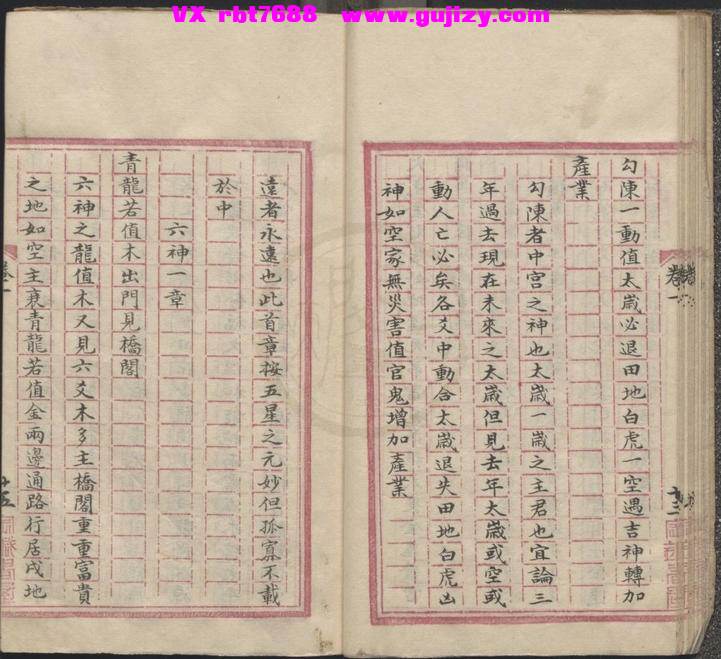 VX rbt7688 www.gujizy.com
勾陳一動值太歲必退田地白虎一空遇吉神轉加
產業
勾陳者中宮之神也太歲一歲之主君也宜論三
年過去現在未來之太歲但見去年太歲或空或
動人亡必矣各爻中動合太歲退失田地白虎凶
神如空家無災害值官鬼增加產業
卷一
十三
遠者永遠也此首章按五星之元妙但孤寡不載
於中
六神一章
青龍若值木出門見橋閣
六神之龍值木又見六爻木多主橋閣重重富貴
之地如空主衰青龍若值金兩邊通路行居戌地
卷一
十五